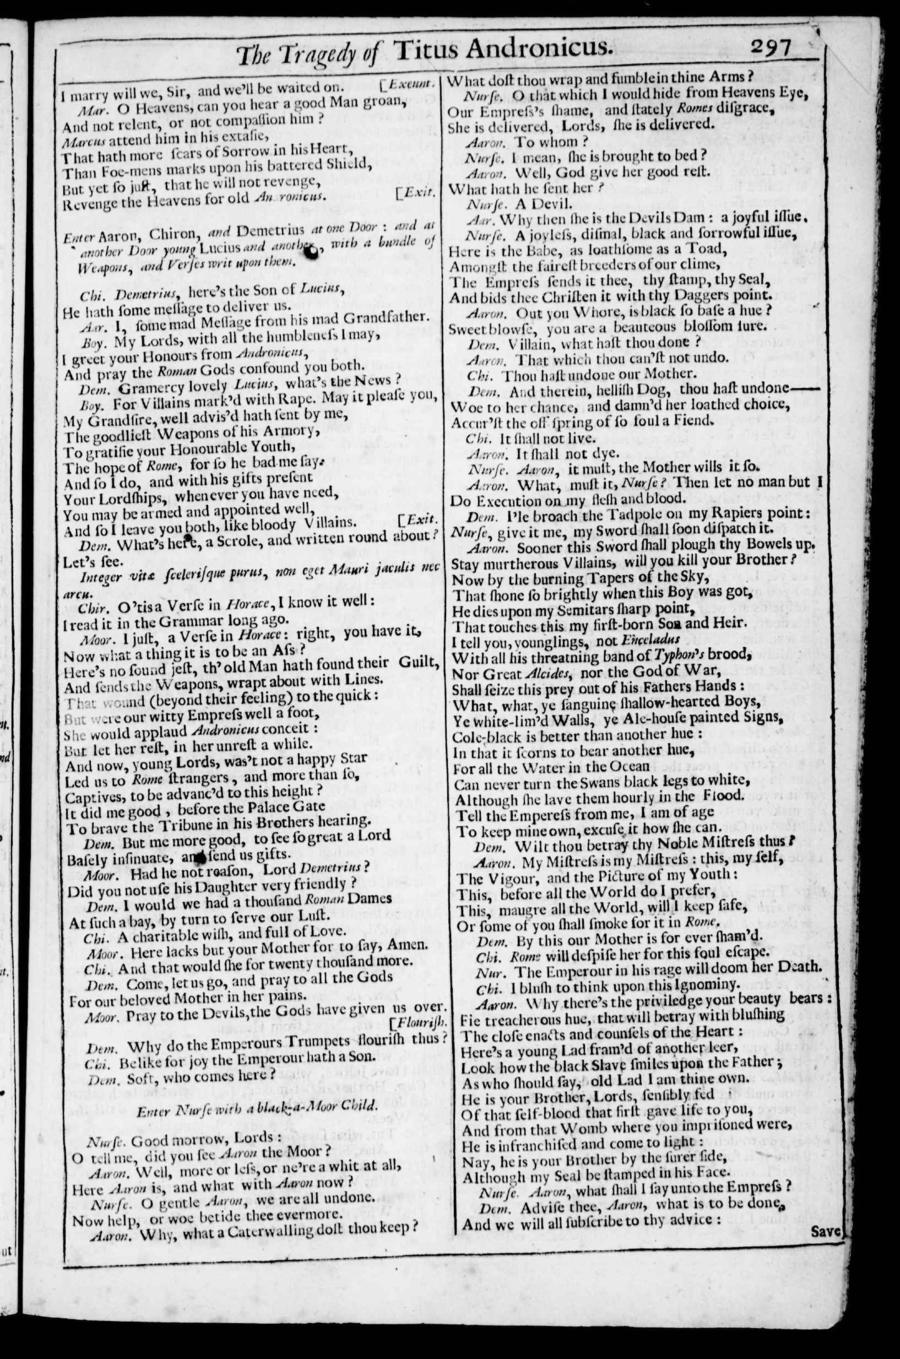 The Tragedy of Titus Andronicus. 297
I marry will we, Sir, and we'll be waited on. [Exeunt.
Mar. O Heavens, can you hear a good Man groan,
And not relent, or not compaſſion him?
Marcus attend him in his extaſie,
That hath more ſcars of Sorrow in his Heart,
Than Foe-mens marks upon his battered Shield,
But yet ſo juſt, that he will not revenge,
Revenge the Heavens for old An ronicus. [Exit.
Enter Aaron, Chiron, and Demetrius at one Door: and at
another Door young Lucius and another, with a bundle of
Weapons, and Verſes writ upon them.
Chi. Demetrius, here's the Son of Lucius,
He hath ſome meſſage to deliver us.
Aar. I, ſome mad Meſſage from his mad Grandfather.
Boy. My Lords, with all the humbleneſs I may,
I greet your Honours from Andronicus,
And pray the Roman Gods confound you both.
Dem. Gramercy lovely Lucius, what's the News?
Boy. For Villains mark'd with Rape. May it pleaſe you,
My Grandſire, well advis'd hath ſent by me,
The goodlieſt Weapons of his Armory,
To gratifie your Honourable Youth,
The hope of Rome, for ſo he bad me ſay:
And ſo I do, and with his gifts preſent
Your Lordſhips, whenever you have need,
You may be armed and appointed well,
And ſo I leave you both, like bloody Villains. [Exit.
Dem. What's here, a Scrole, and written round about?
Let's ſee.
Integer vitæ ſceleriſque purus, non eget Mauri jaculis nec
arcu.
Chir. O'tis a Verſe in Horace, I know it well:
I read it in the Grammar long ago.
Moor. I juſt, a Verſe in Horace: right, you have it,
Now what a thing it is to be an Aſs?
Here's no ſound jeſt, th' old Man hath found their Guilt,
And ſends the Weapons, wrapt about with Lines.
That wound (beyond their feeling) to the quick:
But were our witty Empreſs well a foot,
She would applaud Andronicus conceit:
But let her reſt, in her unreſt a while.
And now, young Lords, was't not a happy Star
Led us to Rome ſtrangers, and more than ſo,
Captives, to be advanc'd to this height?
It did me good, before the Palace Gate
To brave the Tribune in his Brothers hearing.
Dem. But me more good, to ſee ſo great a Lord
Baſely inſinuate, and ſend us gifts.
Moor. Had he not reaſon, Lord Demetrius?
Did you not uſe his Daughter very friendly?
Dem. I would we had a thouſand Roman Dames
At ſuch a bay, by turn to ſerve our Luſt.
Chi. A charitable wiſh, and full of Love.
Moor. Here lacks but your Mother for to ſay, Amen.
Chi. And that would ſhe for twenty thouſand more.
Dem. Come, let us go, and pray to all the Gods
For our beloved Mother in her pains.
Moor. Pray to the Devils, the Gods have given us over.
[Flouriſh.
Dem. Why do the Emperours Trumpets flouriſh thus?
Chi. Belike for joy the Emperour hath a Son.
Dem. Soft, who comes here?
Enter Nurſe with a black-a-Moor Child.
Nurſe. Good morrow, Lords:
O tell me, did you ſee Aaron the Moor?
Aaron. Well, more or leſs, or ne're a whit at all,
Here Aaron is, and what with Aaron now?
Nurſe. O gentle Aaron, we are all undone.
Now help, or woe betide thee evermore.
Aaron. Why, what a Caterwalling doſt thou keep?
What doſt thou wrap and fumble in thine Arms?
Nurſe. O that which I would hide from Heavens Eye,
Our Empreſs's ſhame, and ſtately Romes diſgrace,
She is delivered, Lords, ſhe is delivered.
Aaron. To whom?
Nurſe. I mean, ſhe is brought to bed?
Aaron. Well, God give her good reſt.
What hath he ſent her?
Nurſe. A Devil.
Aar. Why then ſhe is the Devils Dam: a joyful iſſue.
Nurſe. A joyleſs, diſmal, black and ſorrowful iſſue,
Here is the Babe, as loathſome as a Toad,
Amongſt the faireſt breeders of our clime,
The Empreſs ſends it thee, thy ſtamp, thy Seal,
And bids thee Chriſten it with thy Daggers point.
Aaron. Out you Whore, is black ſo baſe a hue?
Sweet blowſe, you are a beauteous bloſſom ſure.
Dem. Villain, what haſt thou done?
Aaron. That which thou can'ſt not undo.
Chi. Thou haſt undone our Mother.
Dem. And therein, helliſh Dog, thou haſt undone——
Woe to her chance, and damn'd her loathed choice,
Accur'ſt the off ſpring of ſo foul a Fiend.
Chi. It ſhall not live.
Aaron. It ſhall not dye.
Nurſe. Aaron, it muſt, the Mother wills it ſo.
Aaron. What, muſt it, Nurſe? Then let no man but I
Do Execution on my fleſh and blood.
Dem. I'le broach the Tadpole on my Rapiers point:
Nurſe, give it me, my Sword ſhall ſoon diſpatch it.
Aaron. Sooner this Sword ſhall plough thy Bowels up.
Stay murtherous Villains, will you kill your Brother?
Now by the burning Tapers of the Sky,
That ſhone ſo brightly when this Boy was got,
He dies upon my Semitars ſharp point,
That touches this my firſt-born Son and Heir.
I tell you, younglings, not Enceladus
With all his threatning band of Typhon's brood,
Nor Great Alcides, nor the God of War,
Shall ſeize this prey out of his Fathers Hands:
What, what, ye ſanguine ſhallow-hearted Boys,
Ye white-lim'd Walls, ye Ale-houſe painted Signs,
Cole-black is better than another hue:
In that it ſcorns to bear another hue,
For all the Water in the Ocean
Can never turn the Swans black legs to white,
Although ſhe lave them hourly in the Flood.
Tell the Empereſs from me, I am of age
To keep mine own, excuſe it how ſhe can.
Dem. Wilt thou betray thy Noble Miſtreſs thus?
Aaron. My Miſtreſs is my Miſtreſs: this, my ſelf,
The Vigour, and the Picture of my Youth:
This, before all the World do I prefer,
This, maugre all the World, will I keep ſafe,
Or ſome of you ſhall ſmoke for it in Rome.
Dem. By this our Mother is for ever ſham'd.
Chi. Rome will deſpiſe her for this foul eſcape.
Nur. The Emperour in his rage will doom her Death.
Chi. I bluſh to think upon this Ignominy.
Aaron. Why there's the priviledge your beauty bears:
Fie treacherous hue, that will betray with bluſhing
The cloſe enacts and counſels of the Heart:
Here's a young Lad fram'd of another leer,
Look how the black Slave ſmiles upon the Father;
As who ſhould ſay, old Lad I am thine own.
He is your Brother, Lords, ſenſibly fed
Of that ſelf-blood that firſt gave life to you,
And from that Womb where you impriſoned were,
He is infranchiſed and come to light:
Nay, he is your Brother by the ſurer ſide,
Although my Seal be ſtamped in his Face.
Nurſe. Aaron, what ſhall I ſay unto the Empreſs?
Dem. Adviſe thee, Aaron, what is to be done,
And we will all ſubſcribe to thy advice:
Save